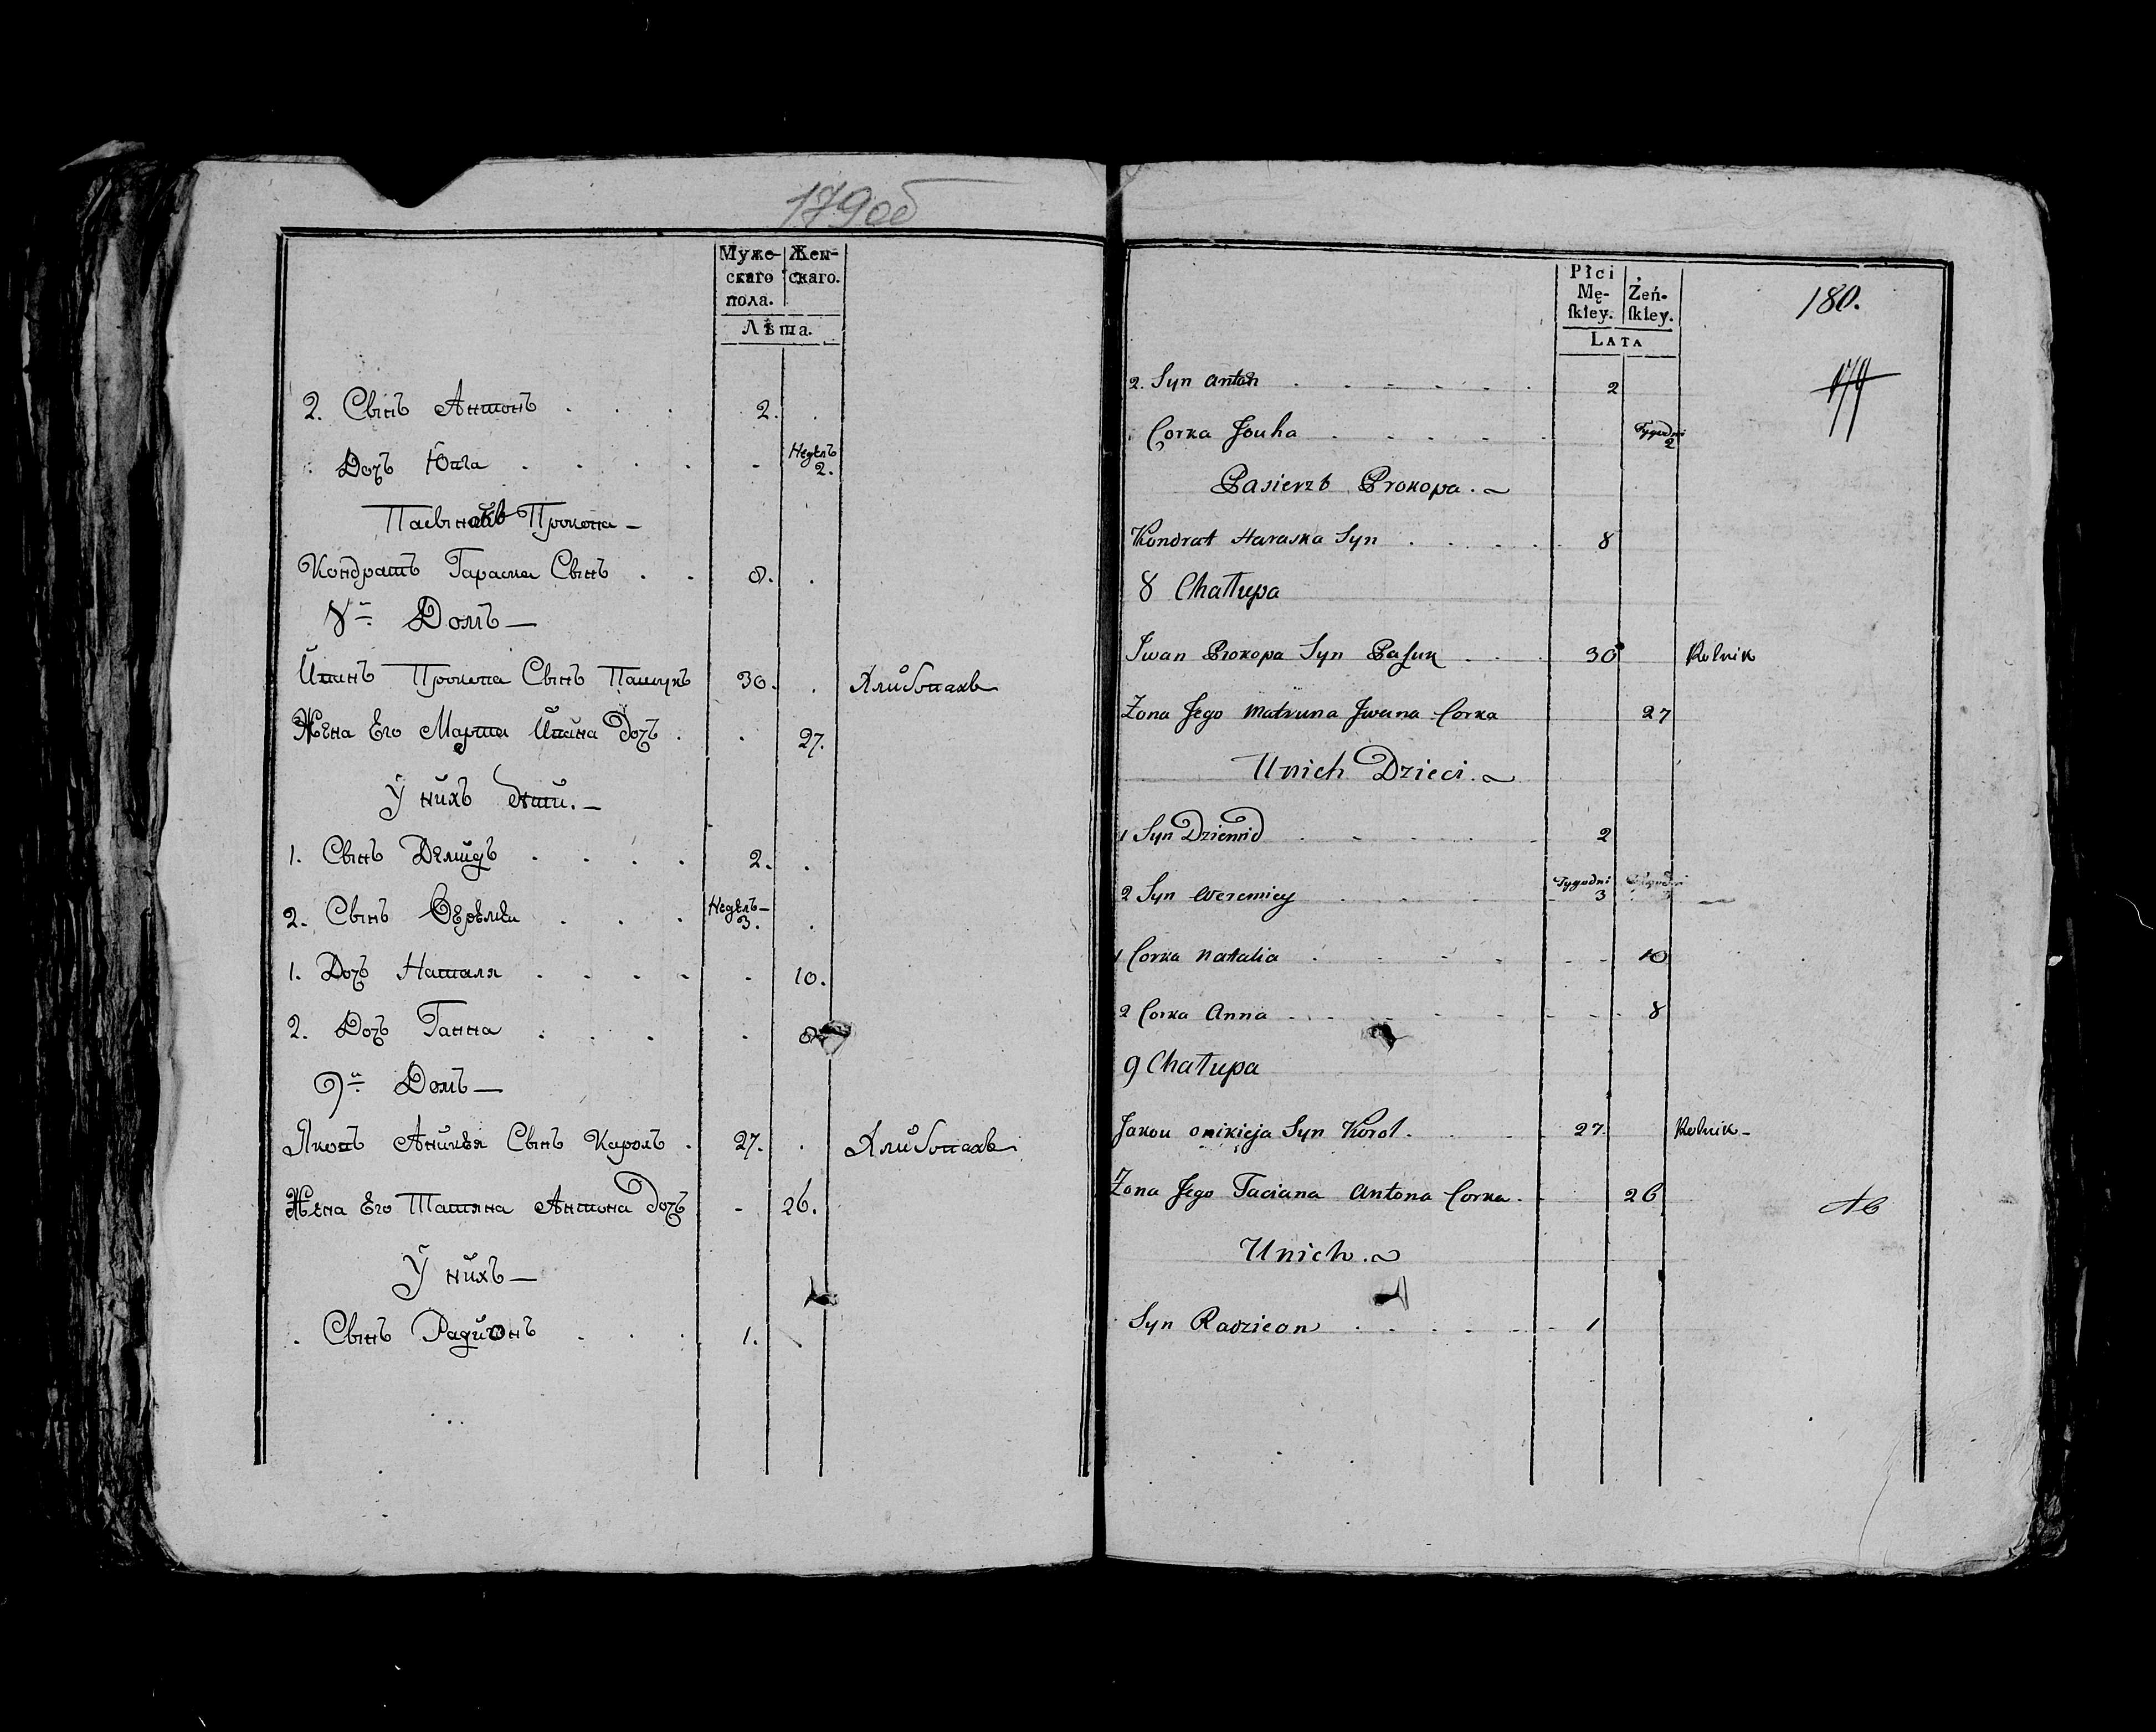 179об
Муже- Жен-
скаго скаго.
пола.
Лѣта.
2. Сынъ Антонъ 2.
Дочь Юга Недель 2.
Пасынокъ Прокопа
Кондратъ Гараска Сынъ 8.
8й Домъ
Иванъ Прокопа Сынъ 30. Хлибопахъ
Жена Его Ивана Дочь 27.
У нихъ дѣти.
1. Сынъ Демидъ 2.
2. Сынъ Недель 3.
1. Дочь Наталя 10.
2. Дочь Ганна 8
9й Домъ
Яковъ Аникея Сынъ Кароль 27. Хлибопахъ
Жена Его Татяна Антона Дочь 26.
У нихъ
Сынъ Радионъ 1.
Płci
Mę- Żeń-
ſkiey. ſkiey.
LATA
180.
2. Syn Anton 2
Corka Jouha Tygodni 2
Pasierzb Prokopa.
Kondrat Haraska Syn 8
8 Chałupa
Jwan Prokopa Syn Paſuk 30 Rolnik
Zona Jego Matruna Jwana Corka 27
Unich Dzieci.
1 Syn Dziemid 2
2 Syn Weremiey Tygodni 3
1 Corka Natalia 10
2 Corka Anna 8
9 Chałupa
Jakou Onikieja Syn Korol. 27 Rolnik
Zona Jego Taciana Antona Corka 26
Unich.
Syn Radzieon 1